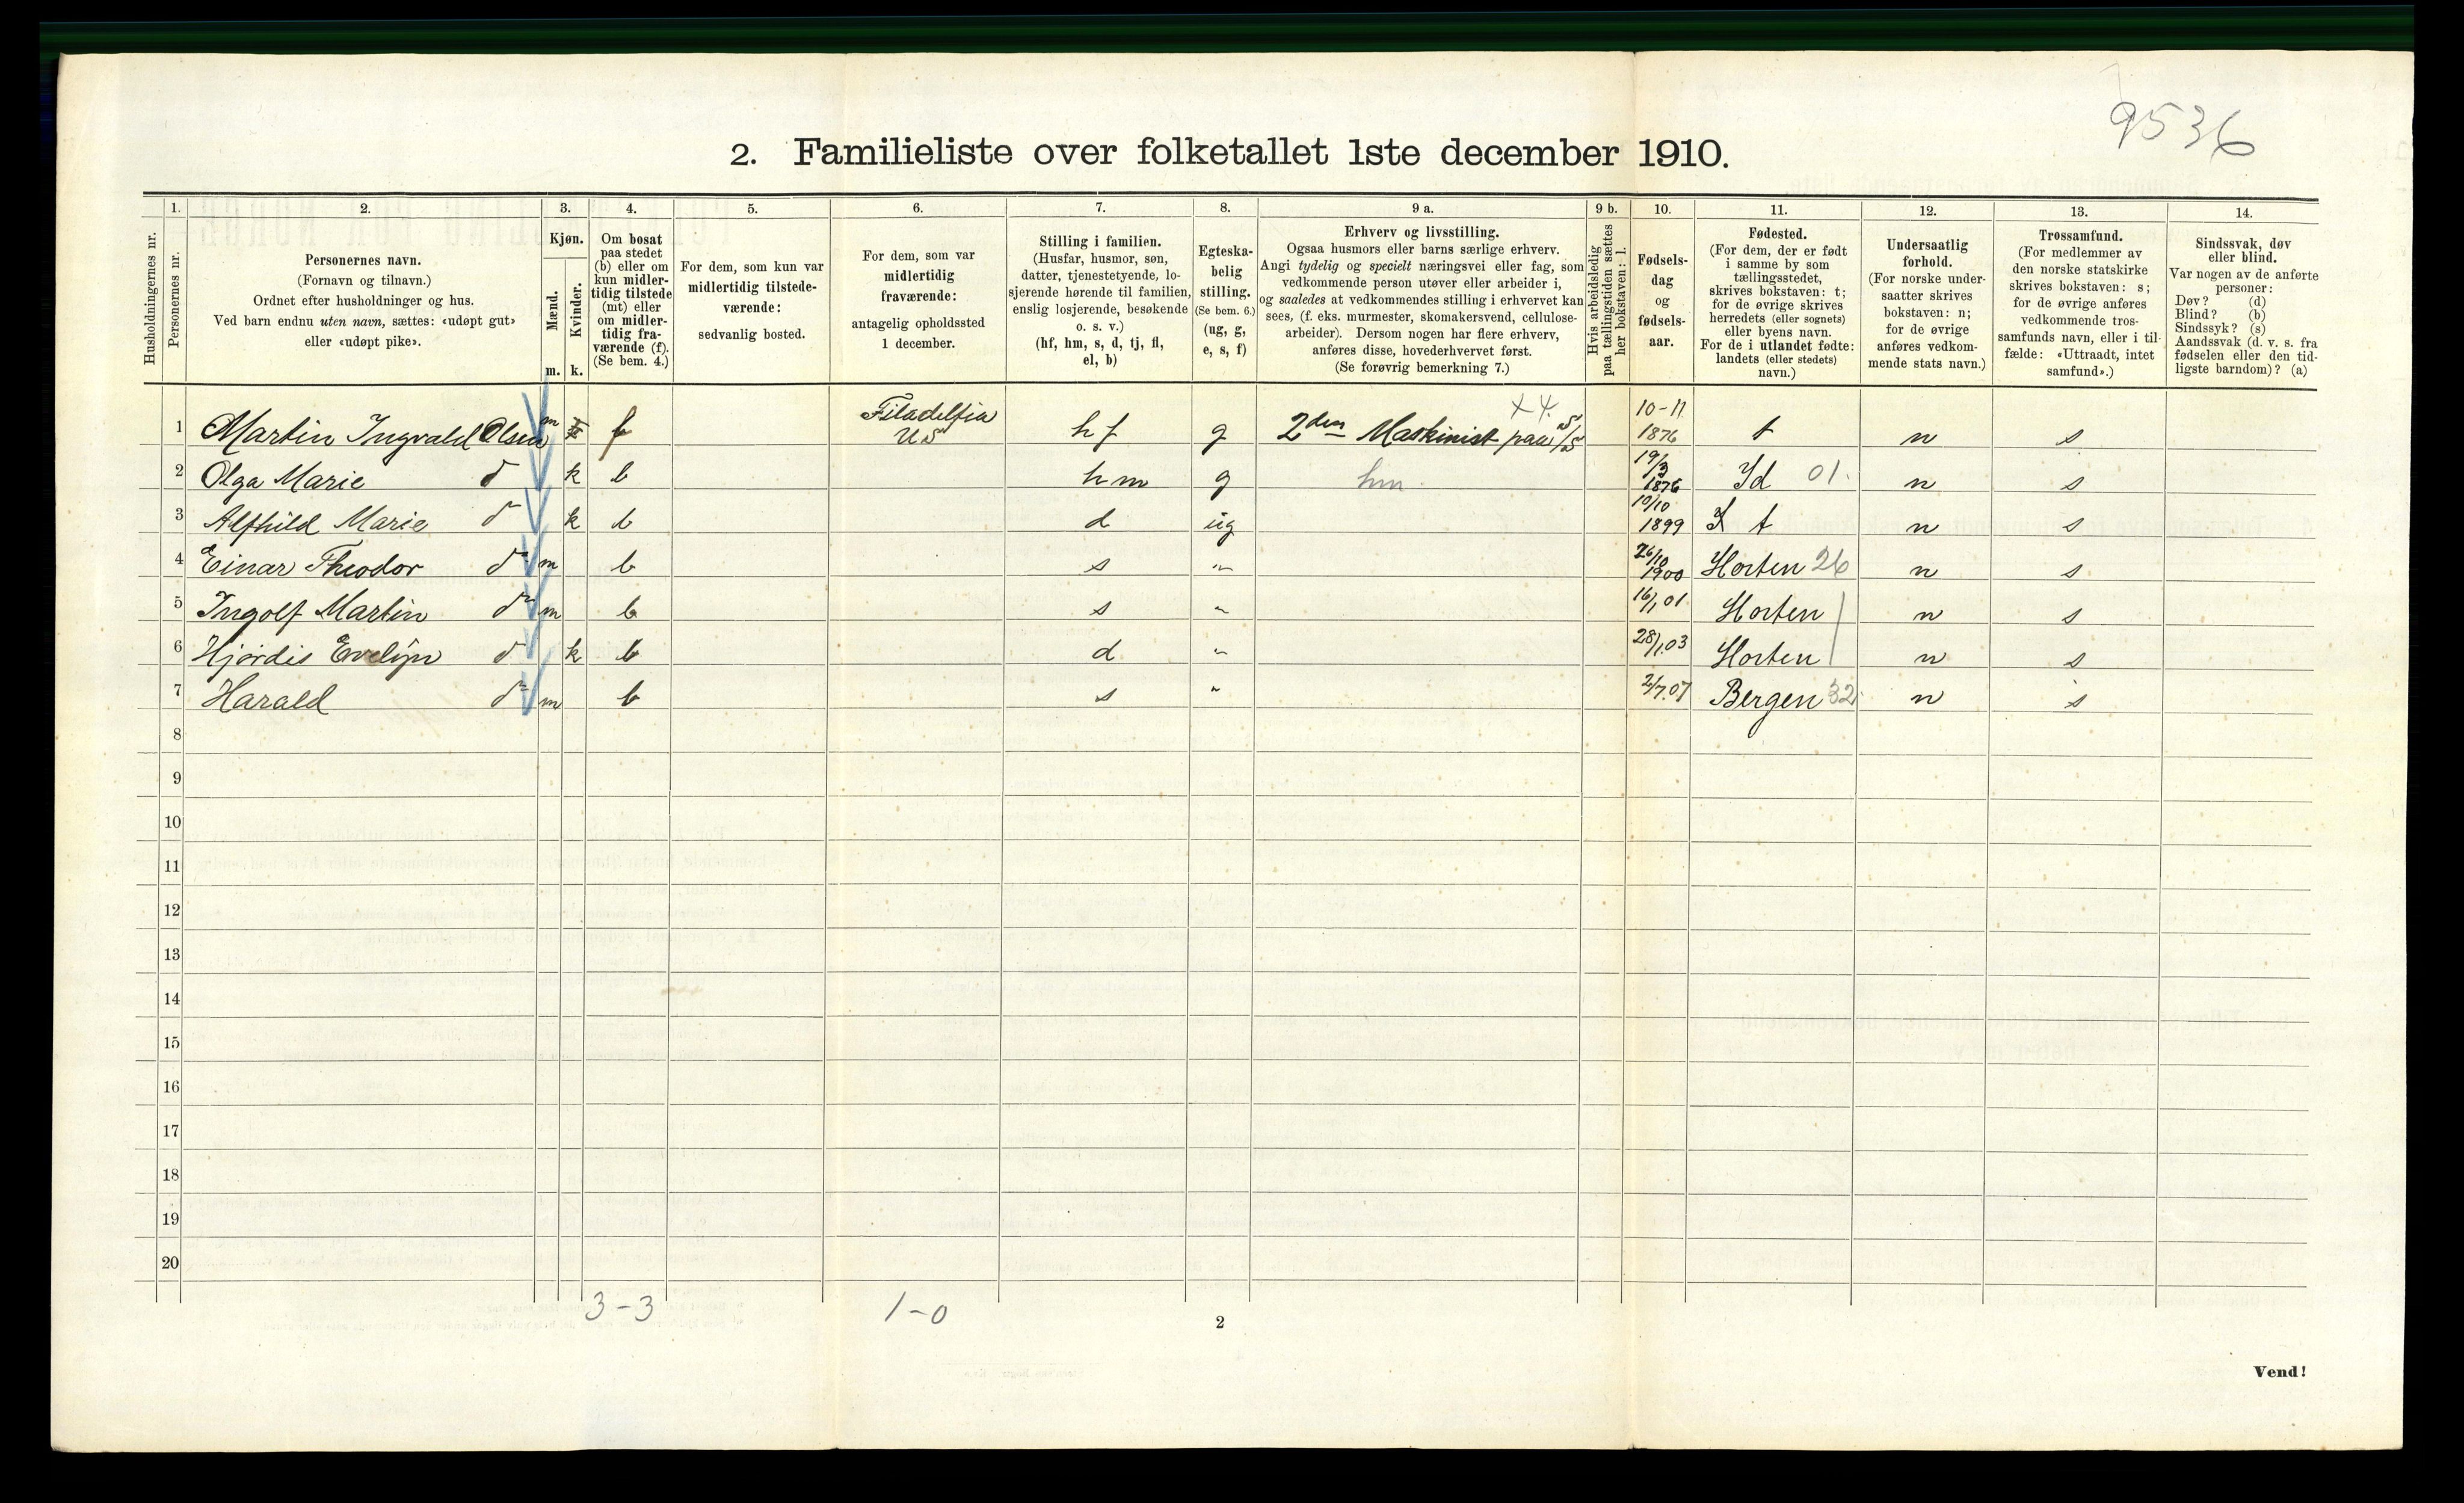 9536
2. Familieliste over folketallet 1ste december 1910.
Husholdningernes nr.
1. Personernes nr.
2. Personernes navn.
(Fornavn og tilnavn.)
Ordnet efter husholdninger og hus.
Ved barn endnu uten navn, sættes: «udøpt gut»
eller «udøpt pike».
3. Kjøn.
Mænd. m.
Kvinder. k.
4. Om bosat
paa stedet
(b) eller om
kun midler-
tidig tilstede
(mt) eller
om midler-
tidig fra-
værende (f).
(Se bem. 4.)
5. For dem, som kun var
midlertidig tilstede-
værende:
sedvanlig bosted.
6. For dem, som var
midlertidig
fraværende:
antagelig opholdssted
1 december.
7. Stilling i familien.
(Husfar, husmor, søn,
datter, tjenestetyende, lo-
sjerende hørende til familien,
enslig losjerende, besøkende
o. s. v.)
(hf, hm, s, d, tj, fl,
el, b)
8. Egteska-
belig
stilling.
(Se bem. 6.)
(ug, g,
e, s, f)
9 a. Erhverv og livsstilling.
Ogsaa husmors eller barns særlige erhverv.
Angi tydelig og specielt næringsvei eller fag, som
vedkommende person utøver eller arbeider i,
og saaledes at vedkommendes stilling i erhvervet kan
sees, (f. eks. murmester, skomakersvend, cellulose-
arbeider). Dersom nogen har flere erhverv,
anføres disse, hovederhvervet først.
(Se forøvrig bemerkning 7.)
9 b. Hvis arbeidsledig
paa tællingstiden sættes
her bokstaven: l.
10. Fødsels-
dag
og
fødsels-
aar.
11. Fødested.
(For dem, der er født
i samme by som
tællingsstedet,
skrives bokstaven: t;
for de øvrige skrives
herredets (eller sognets)
eller byens navn.
For de i utlandet fødte:
landets (eller stedets)
navn.)
12. Undersaatlig
forhold.
(For norske under-
saatter skrives
bokstaven: n;
for de øvrige
anføres vedkom-
mende stats navn.)
13. Trossamfund.
(For medlemmer av
den norske statskirke
skrives bokstaven: s;
for de øvrige anføres
vedkommende tros-
samfunds navn, eller i til-
fælde: «Uttraadt, intet
samfund».)
14. Sindssvak, døv
eller blind.
Var nogen av de anførte
personer:
Døv? (d)
Blind? (b)
Sindssyk? (s)
Aandssvak (d. v. s. fra
fødselen eller den tid-
ligste barndom)? (a)
1 Martin Ingvald Olsen m f Filadelfia US hf g 2den Maskinist paa S/S X 4. 10-11 1876 t n s
2 Olga Marie do k b hm g hm 19/3 1876 Id 01. n s
3 Alfhild Marie do k b d ug 10/10 1899 t n s
4 Einar Theodor do m b s " 26/10 1900 Horten 26 n s
5 Ingolf Martin do m b s " 16/1 01 Horten n s
6 Hjørdis Evelyn do k b d " 28/1 03 Horten n s
7 Harald do m b s " 2/7.07 Bergen 32. n s
8
9
10
11
12
13
14
15
16
17
18
19
20
3-3 1-0
2
Vend!